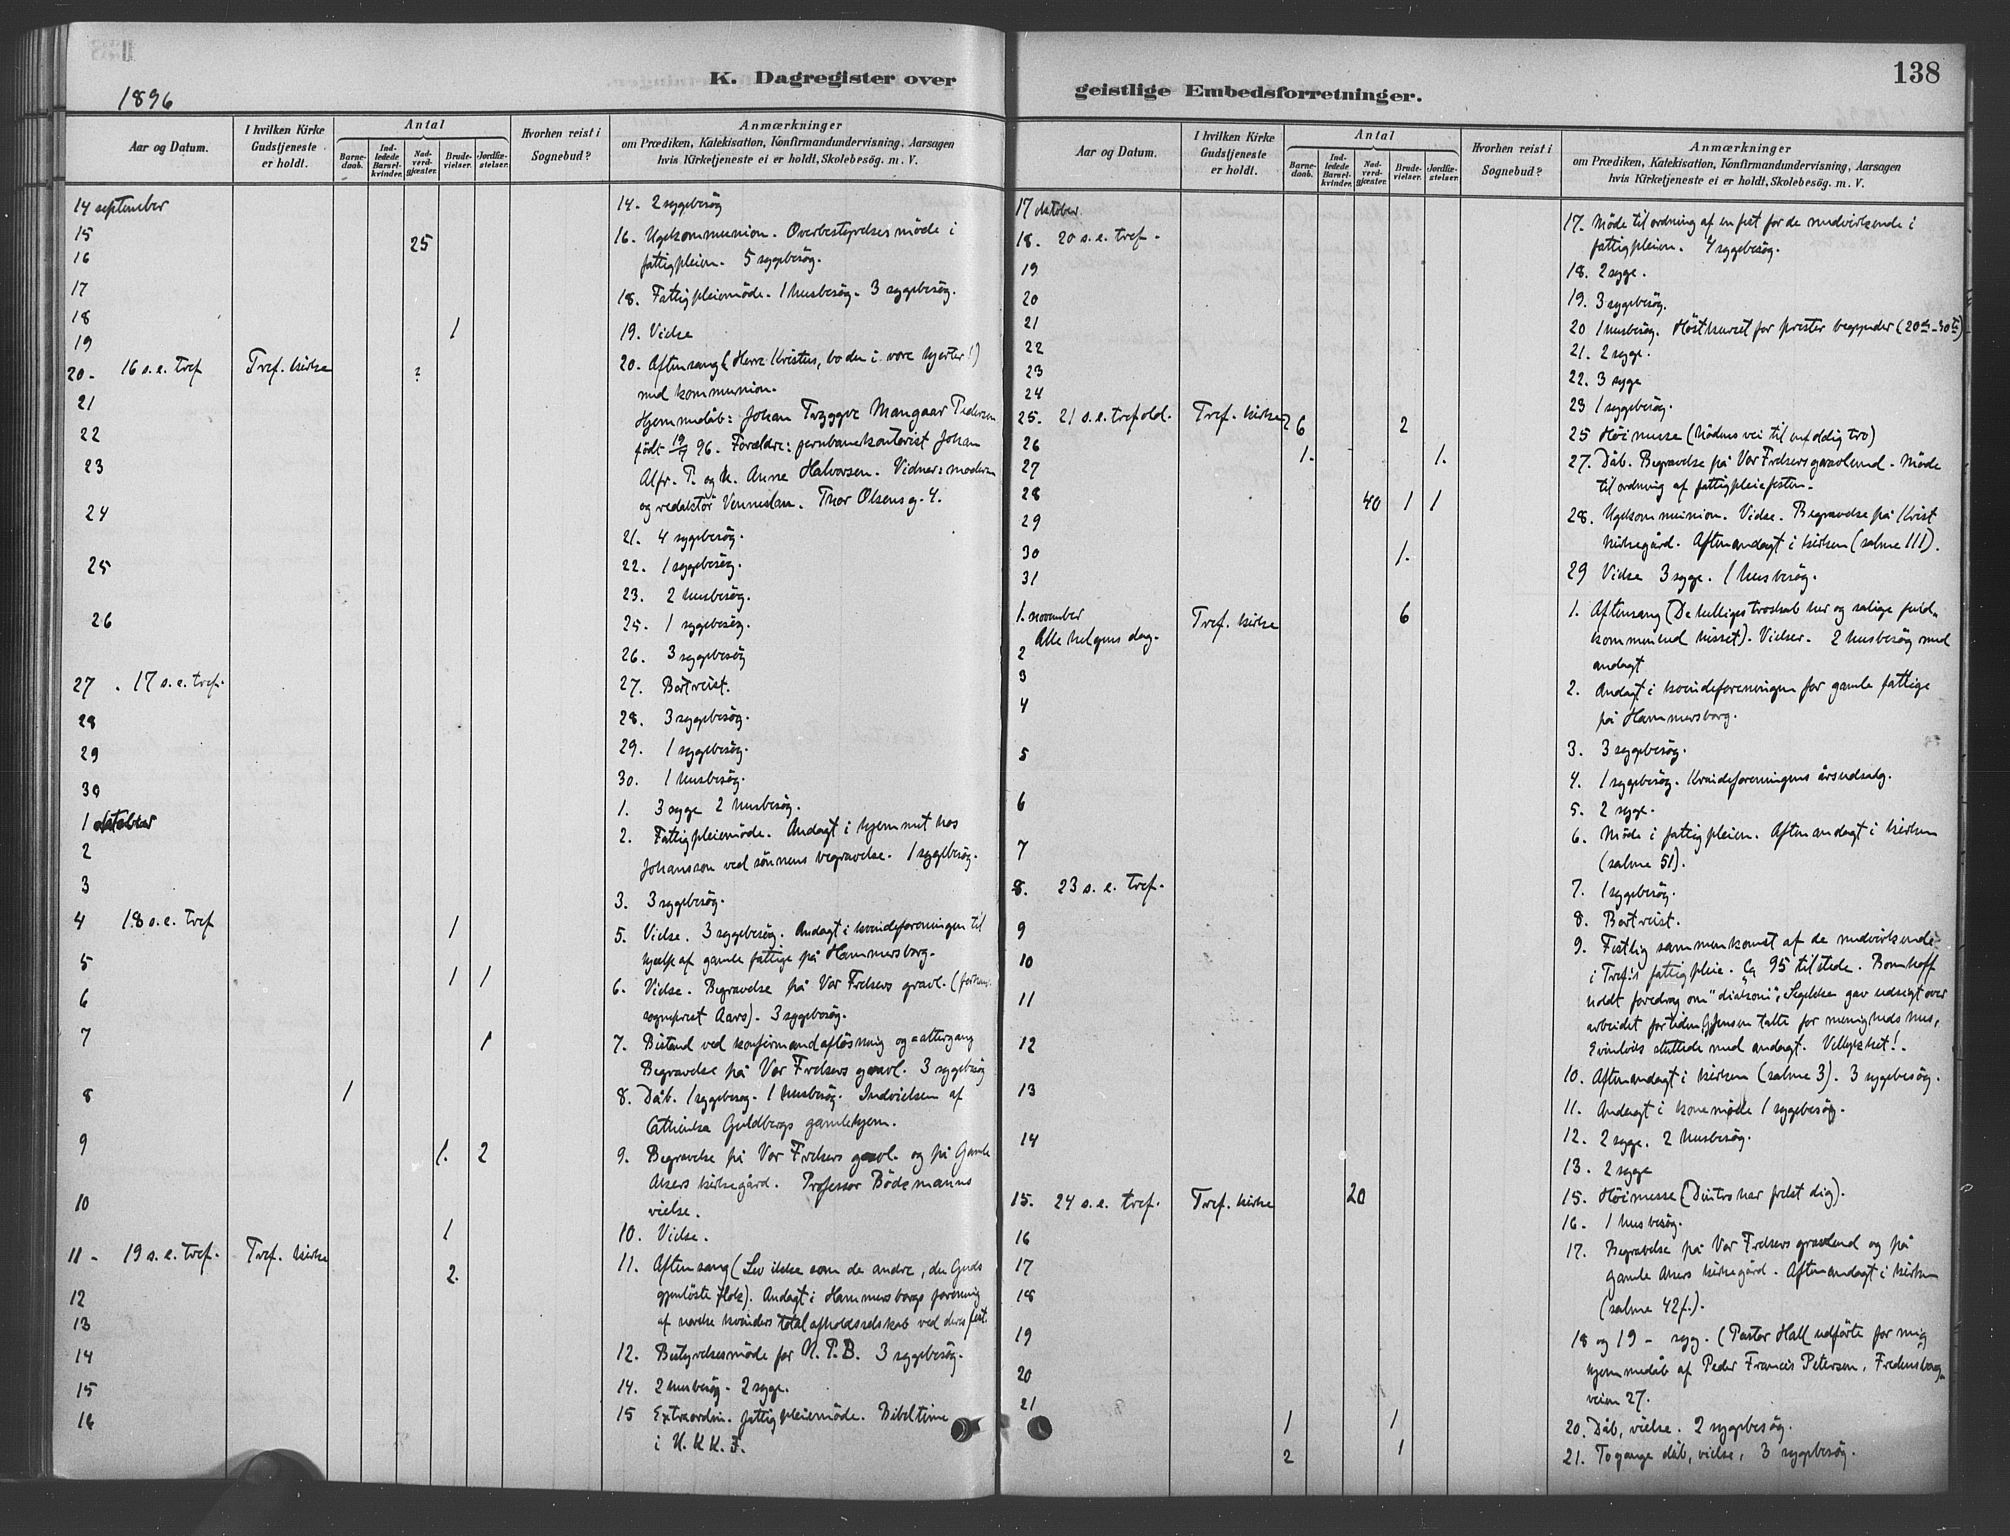 138
K. Dagregister over
geistlige Embedsforretninger.
1896
Aar og Datum.
I hvilken Kirke
Gudstjeneste
er holdt.
Antal
Barne-
daab.
Ind-
ledede
Barsel-
kvinder.
Nad-
verd-
gjæster.
Brude-
vielser.
Jordfæ-
stelser.
Hvorhen reist i
Sognebud?
Anmærkninger
om Prædiken, Katekisation, Konfirmandundervisning, Aarsagen
hvis Kirketjeneste ei er holdt, Skolebesög. m. V.
14 september
14. 2 sygebesög
15
25
16. Ugekommunion. Overbestyrelsesmöde i
16
fattigpleien. 5 sygebesög.
17
18. Fattigpleiemöde. 1 husbesög. 3 sygebesög.
18
1
19. Vielse
19
20. 16 s. e. tref Tref. kirke ?
20. Aftensang (Herre Kristus, bo du i vore hjerter!)
med kommunion.
21
Hjemmedåb: Johan Tryggve Mangaar Pedersen
22
født 19/7 96. Forældre: jernbanekontorist Johan
23
Alfr. P. og h. Anne Halvorsen. Vidner: moderen
24
og redaktör Vennesland. Thor Olsens g. 4.
21. 4 sygebesög.
25
22. 1 sygebesög.
23. 2 husbesög.
26
25. 1 sygebesög.
26. 3 sygebesög
27. 17 s. e. tref.
27. Bortreist.
28
28. 3 sygebesög.
29
29. 1 sygebesög.
30
30. 1 husbesög.
1 oktober
1. 3 syge 2 husbesög.
2
2. Fattigpleiemöde. Andagt i hjemmet hos
Johansson ved sönnens begravelse. 1 sygebesög.
3
3. 3 sygebesög.
4 18 s. e. tref
1
5. Vielse. 3 sygebesög. Andagt i kvindeforeningen til
5
hjælp af gamle fattige på Hammersborg.
1 1
6. Vielse. Begravelse på Vor Frelsers gravl.
6
sogneprest Aars). 3 sygebesög.
7
1
7. Bistand ved konfirmandaflösning og =altergang
Begravelse på Vor Frelsers gravl. 3 sygebesög
8
1
8. Dåb. 1 sygebesög. 1 husbesög. Indvielsen af
Cathinka Guldbergs gamlehjem.
9
1. 2
9. Begravelse på Vor Frelsers gravl. og på Gamle
Akers kirkegård. Professor Bödtmanns
10
vielse.
1
10. Vielse.
11 - 19 s. e. tref. Tref. kirke
2.
11. Aftensang (Lev ikke som de andre, du Guds
gjenlöste folk). Andagt i Hammersborgs forening
12
13
af norske kvinders totalafholdsselskab ved deres fest.
14
12. Bestyrelsesmöde for N. P. B. 3 sygebesög.
15
14. 2 husbesög. 2 syge.
16
15 Extraordin. fattigpleiemöde. Bibeltime
i U. K. K. F.
Aar og Datum.
I hvilken Kirke
Gudstjeneste
er holdt.
Antal
Barne-
daab.
Ind-
ledede
Barsel-
kvinder.
Nad-
verd-
gjæster.
Brude-
vielser.
Jordfæ-
stelser.
Hvorhen reist i
Sognebud?
Anmærkninger
om Prædiken, Katekisation, Konfirmandundervisning, Aarsagen
hvis Kirketjeneste ei er holdt, Skolebesög. m. V.
17 oktober
17. Möde til ordning af en fest for de medvirkende i
18. 20 s. e. tref.
fattigpleien. 4 sygebesög.
18. 2 syge.
19
19. 3 sygebesög.
20
20 1 husbesög. Höstkurset for prester begynder (20de-30te)
21
21. 2 syge.
22
22. 3 syge
23
24
23 1 sygebesög.
25. 21 s. e. trefold. Tref. kirke 6 2
25 Höimesse (Nödens vei til enfoldig tro)
26
1. 1.
27. Dåb. Begravelse på Vor Frelsers gravlund. Möde
27
til ordning af fattigpleiefesten.
28
40 1 1
28. Ugekommunion. Vielse. Begravelse på Krist
29
kirkegård. Aftenandagt i kirken (salme 111).
30
1.
29 Vielse 3 syge. 1 husbesög.
31
1. november
Alle helgens dag. Tref. kirke 6
1. Aftensang (De helliges troskab her og salige fuld-
kommenhed hisset). Vielser. 2 husbesög med
2
andagt
3
2. Andagt i kvindeforeningen for gamle fattige
4
på Hammersborg.
3. 3 sygebesög.
5
4. 1 sygebesög. Kvindeforeningens årsudsalg.
6
5. 2 syge.
6. Möde i fattigpleien. Aftenandagt i kirken
7
(salme 51).
8. 23 s. e. tref.
7. 1 sygebesög.
8. Bortreist.
9
9. Festlig sammenkomst af de medvirkende
10
i Tref's fattigpleie. Ca 95 tilstede. Bomhoff
11
holdt foredrag om "diakoni", Segelcke gav udsigt over
arbeidet for tiden. Jensen talte for menigheds hus,
12
sluttede med andagt. Vellykket!
10. Aftenandagt i kirken (salme 3). 3 sygebesög.
13
11. Andagt i konemöde 1 sygebesög.
14
12. 2 syge. 2 husbesög.
13. 2 syge
15. 24 s. e. tref. Tref. kirke 20
15. Höimesse (Din tro har frelst dig).
16. 1 husbesög.
16
17. Begravelse på Vor Frelsers gravlund og på
17
gamle Akers kirkegård. Aftenandagt i kirken
18
(salme 42f.).
19
18 og 19 - syg. (Pastor Hall udförte for mig
hjemmedåb af Peder Francis Petersen, Fredensborg-
20
veien 27.
21
1 1
20. Dåb, vielse. 2 sygebesög.
2 1
21. To gange dåb, vielse, 3 sygebesög.